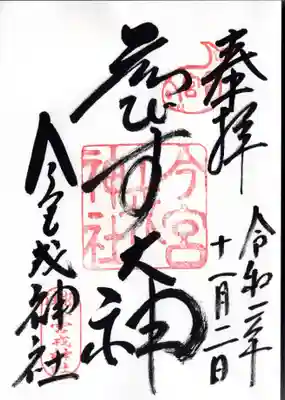 奉拝
令和三年
十一月二日
ゑびす大神
今宮
戎
神社
今宮戎神社